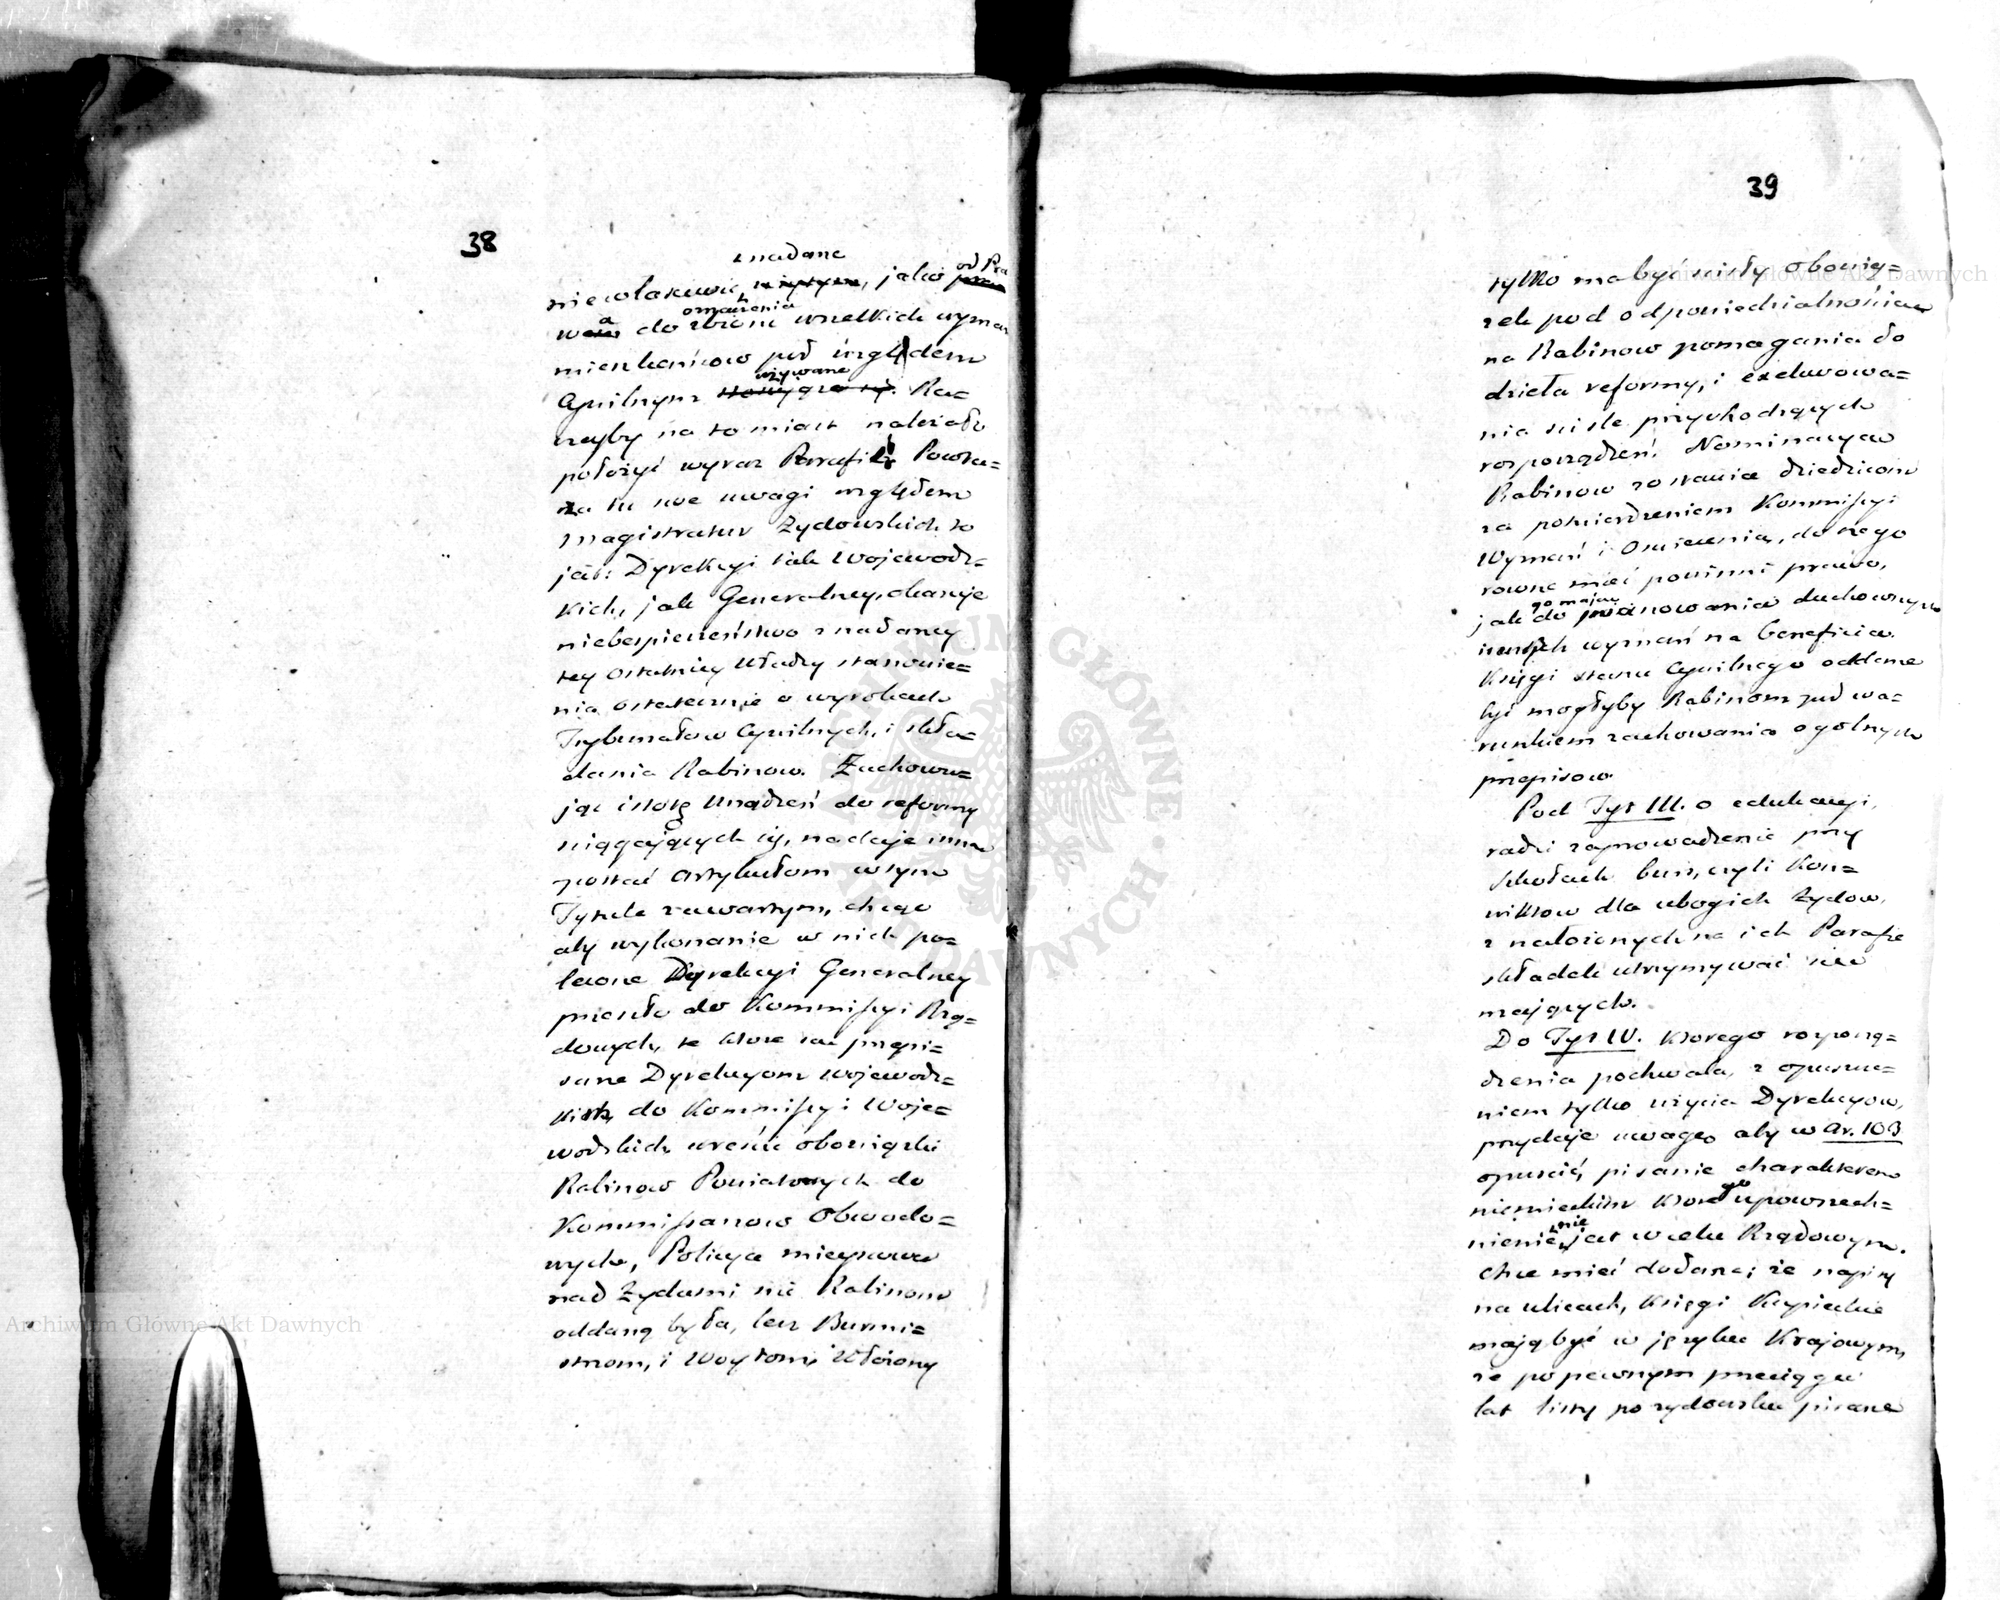 38
nadane
niewłaściwie, jako od Pra
wa do oznaczenia wszelkich wyznań
mieszkańcow pod względem
Cywilnym używane. Ra=
czejby na to miast należało
położyć wyraz Parafii. Powta=
rza tu swe uwagi względem
magistratur Żydowskich to
jest: Dyrekcyi tak Wojewodz=
kich, jak Generalney, okazuje
niebespieczeństwo z nadaney
tey ostatniey Władzy stanowie=
nia ostatecznie o wyrokach
Trybunałow Cywilnych, i skła=
dania Rabinow. Zachowu=
jąc istotę Urządzeń do reformy
ściągających się, nadaje inną
postać Artykułom w tym
Tytule zawartym, chcąc
aby wykonanie w nich po=
lecone Dyrekcyi Generalney
przeszło do Kommissyi Rzą=
dowych, te ktore są przepi=
sane Dyrekcyom Wojewodz=
kich, do Kommissyi Woje=
wodzkich, wreście obowiązki
Rabinow Powiatowych do
Kommissarzow Obwodo=
wych, Policya mieyscowa
nad Żydami nie Rabinom
oddaną była, lecz Burmi=
strzom, i Woytom; Włożony
39
tylko ma być ścisły obowią=
zek pod odpowiedzialnością
na Rabinow pomagania do
dzieła reformy, i exekwowa=
nia ściśle przychodzących
rozporządzeń. Nominacyą
Rabinow zostawia dziedzicom
za potwierdzeniem Kommissyi
Wyznań i Oświecenia, do czego
rowne mieć powinni prawo,
go mają
jak do mianowania duchownych
innych wyznań na beneficia.
Księgi stanu Cywilnego oddane
być mogłyby Rabinom pod wa=
runkiem zachowania ogolnych
przepisow.
Pod Tyt III. o edukacyi,
radzi zaprowadzenie przy
szkołach burs, czyli Kon=
wiktow dla ubogich Żydow,
z nałożonych na ich Parafie
składek utrzymywać się
mających.
Do Tyt IV. ktorego rozporzą=
dzenia pochwala, z opuszcze=
niem tylko użycia Dyrekcyow,
przydaje uwagę, aby w Ar. 103
opuścić, pisanie charakterem
niemieckim ktorego upowszech=
nienie nie jest w celu Rządowym.
Chce mieć dodane; że napisy
na ulicach, Księgi Kupieckie
mają być w języku Krajowym,
że po pewnym przeciągu
lat listy po żydowsku pisane
Archiwum Główne Akt Dawnych